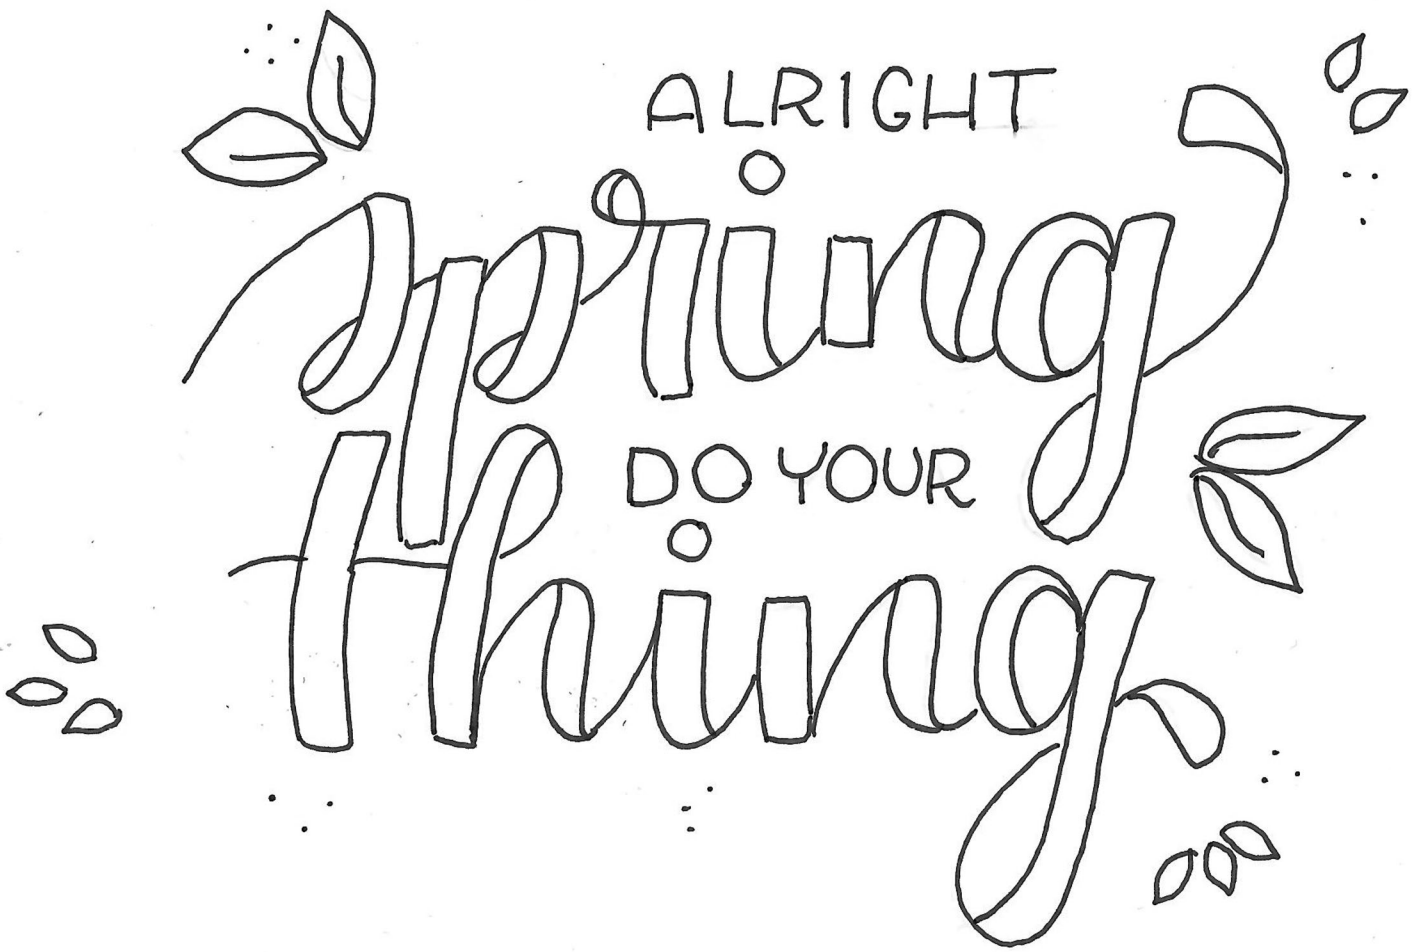 ALRIGHT
spring
DO YOUR
thing